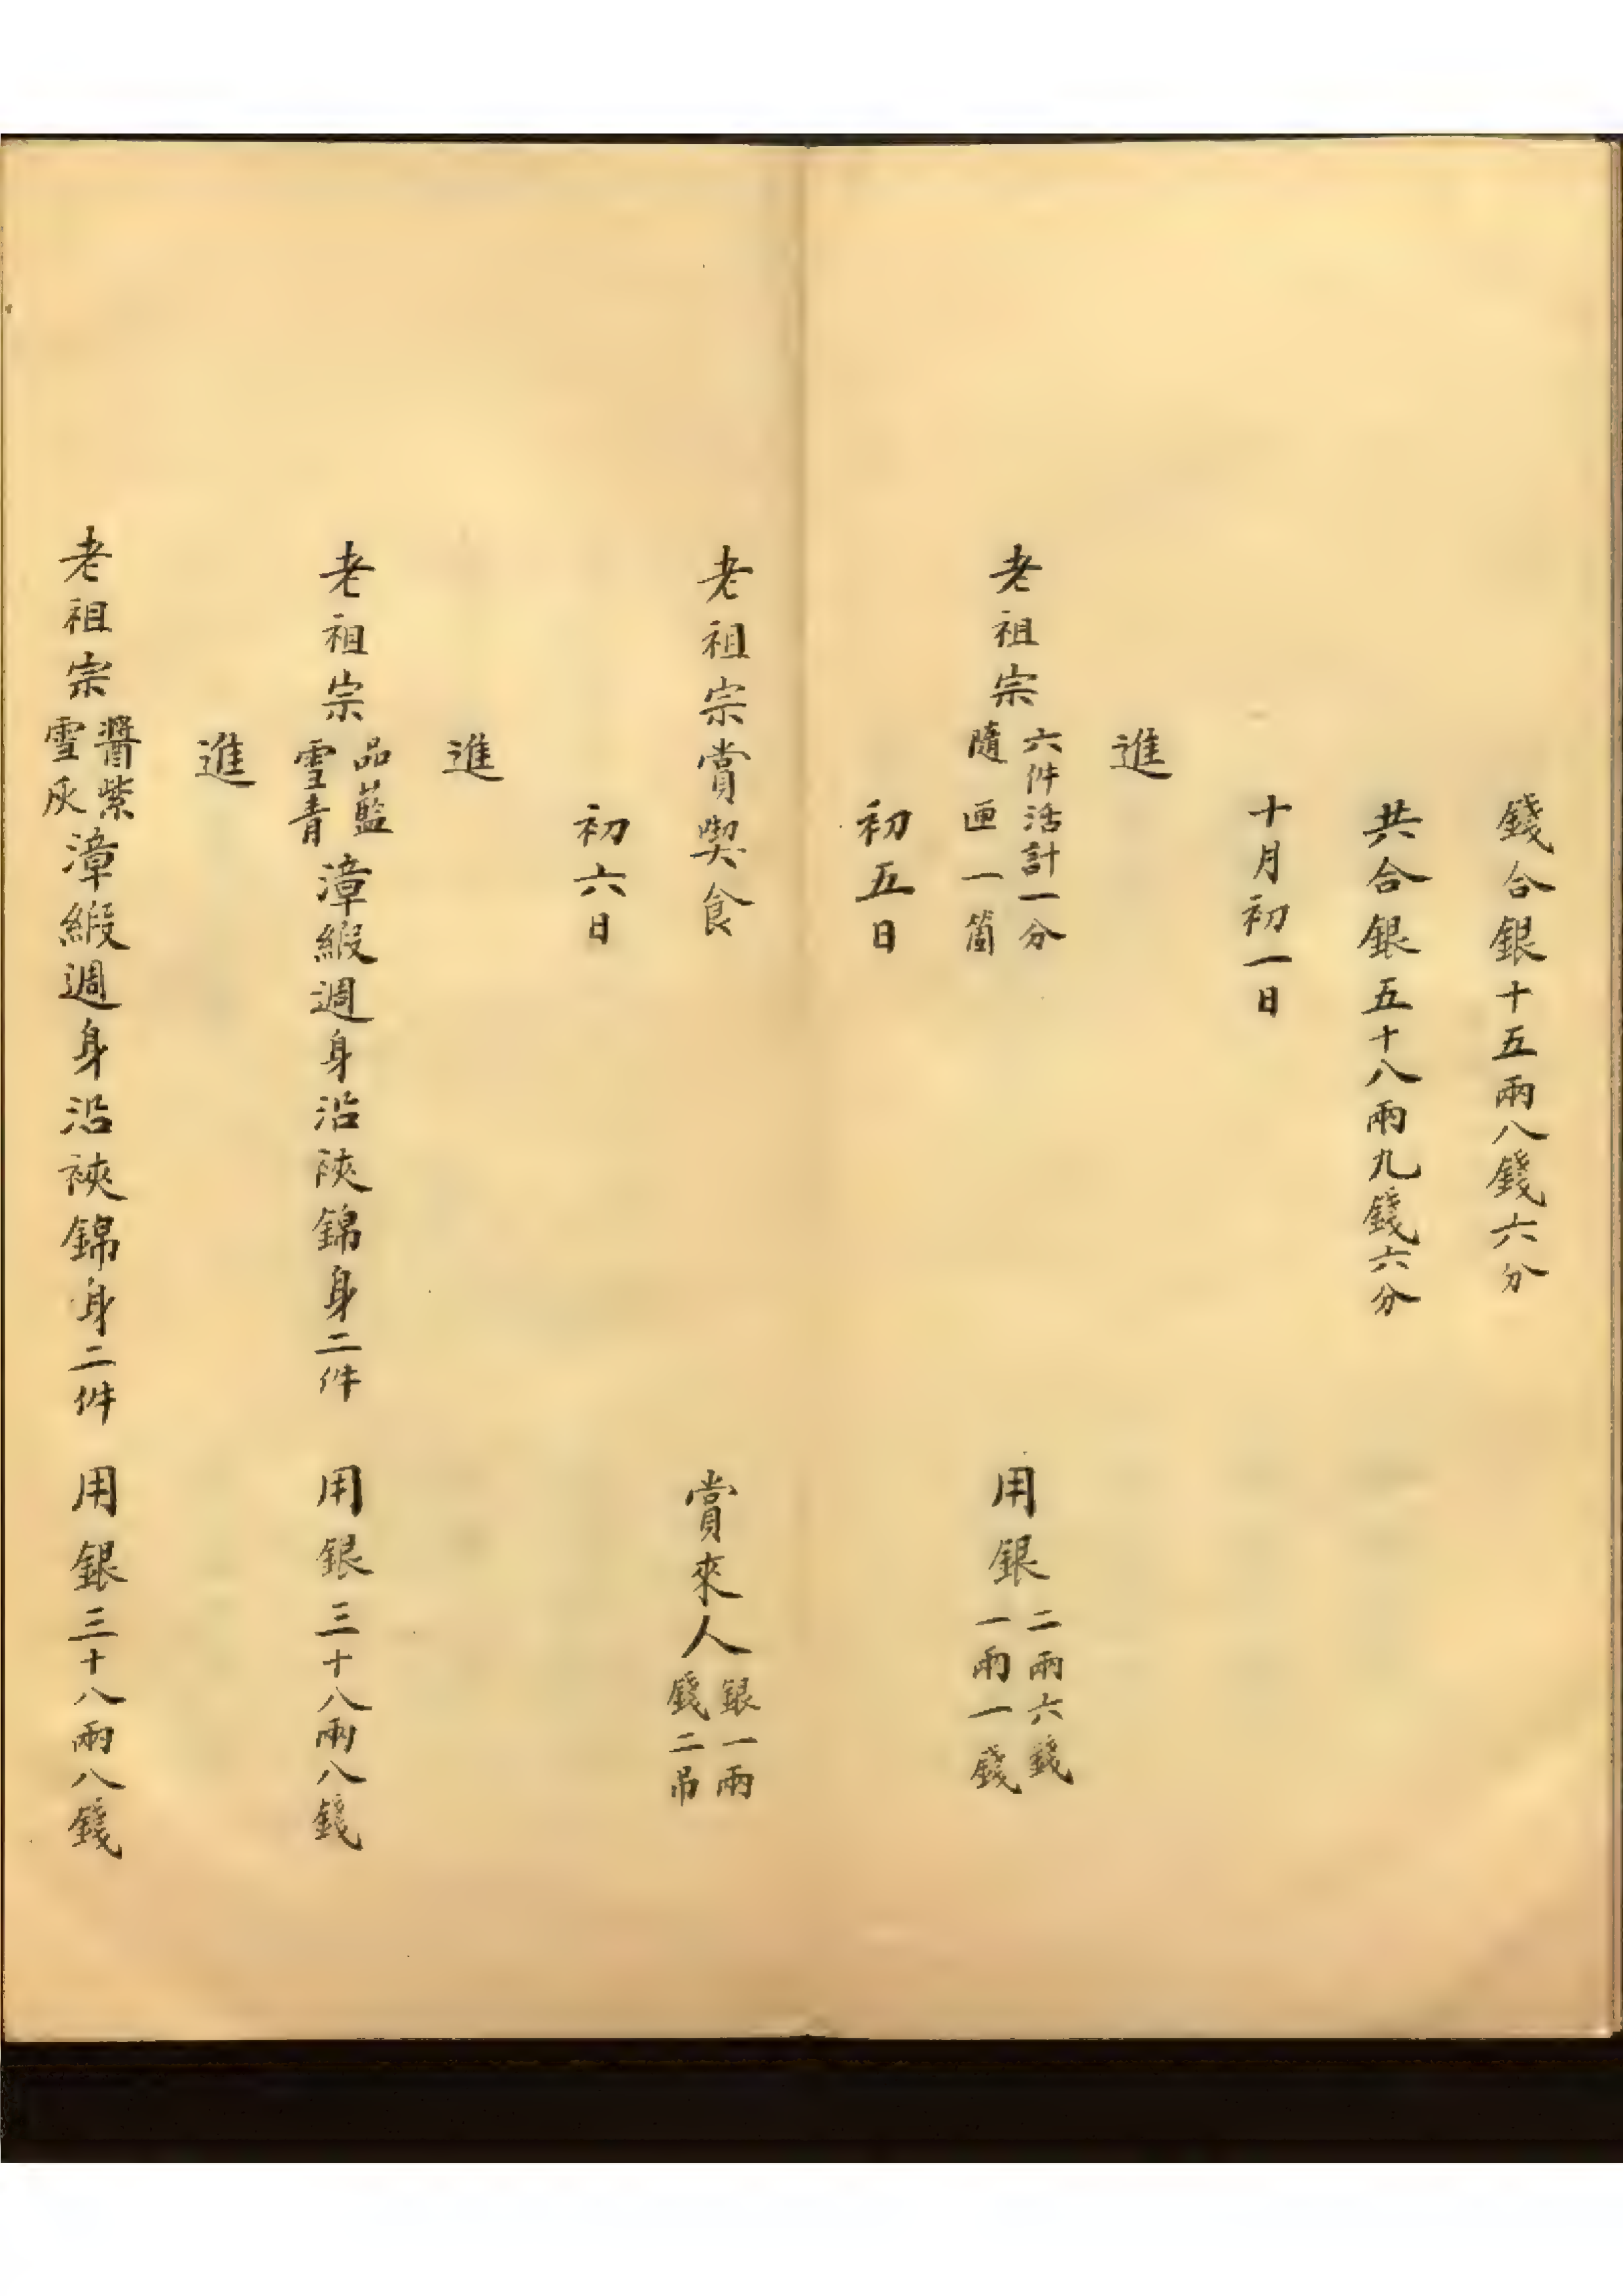 錢合銀十五兩八錢六分
共合銀五十八兩九錢六分
十月初一日
進
老祖宗六件活計一分隨匣一箇　用銀二兩六錢一兩一錢
初五日
老祖宗賞喫食　賞來人銀一兩錢二吊
初六日
進
老祖宗品藍雪青漳緞週身沿裌錦身二件　用銀三十八兩八錢
進
老祖宗醬紫雪灰漳緞週身沿裌錦身二件　用銀三十八兩八錢